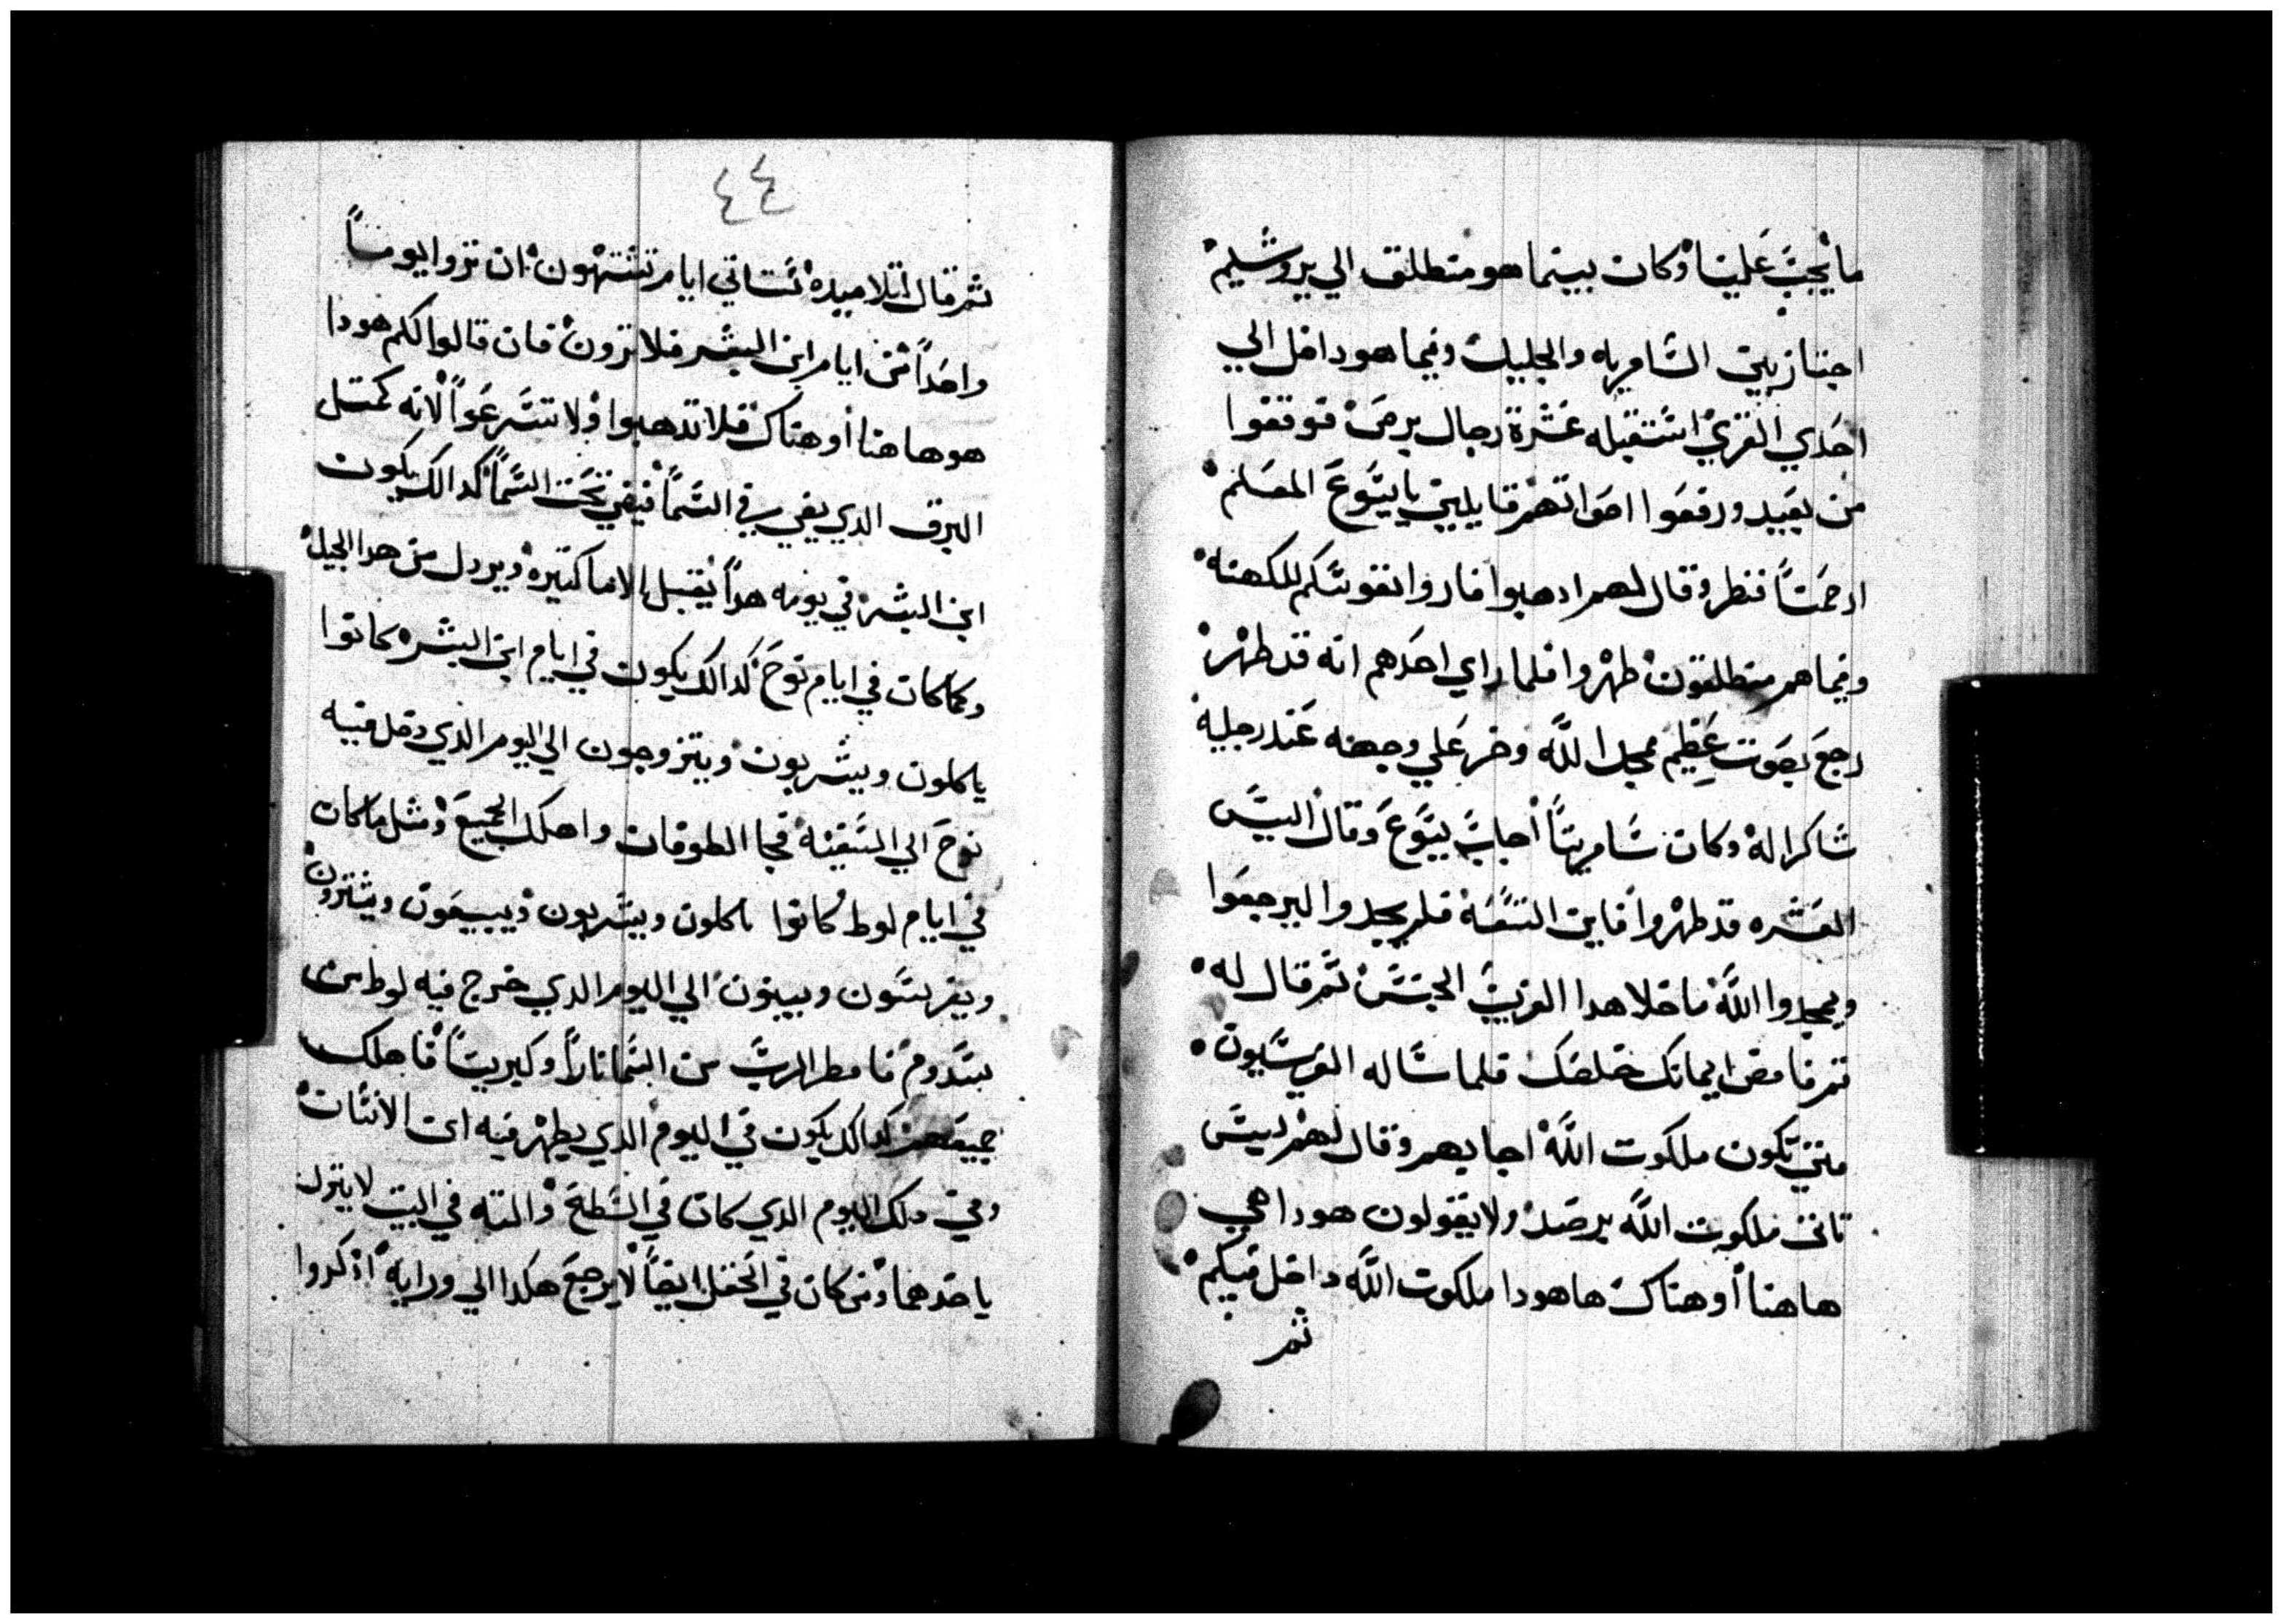 ما يجب علينا وكان بينما هو منطلق الي يروشليم
اجتاز بين السامريه والجليل وفيما هو داخل الي
احدي القري استقبله عشرة رجال برص فوقفوا
من بعيد ورفعوا اصواتهم قايلين يايسوع المعلم
ارحمنا فنظر وقال لهم ادهبوا فاروا نفوسكم للكهنه
وفيما هم منطلقون طهروا فلما راي احدهم انه قد طهر
رجع بصوت عظيم مجد الله وخر علي وجهه عند رجليه
شاكرا له وكان سامريا أجاب يسوع وقال اليس
العشره قد طهروا فاين التسعه فلم يجدوا ليرجعوا
ويمجدوا الله ما خلا هدا الغريب الجنس ثم قال له
قم فامض ايمانك خلصك فلما ساله الفريسيون
متي تكون ملكوت الله اجابهم وقال لهم ليس
تاتي ملكوت الله برصد ولا يقولون هودا هي
هاهنا أو هناك ها هودا ملكوت الله داخل فيكم
ثم
٤٤
ثم قال لتلاميده ستاتي ايام تشتهون ان تروا يوما
واحدا من ايام ابن البشر فلا ترون فان قالوا لكم هودا
هو هاهنا أو هناك فلا تدهبوا ولا تسرعوا لانه كمتل
البرق الدي يضي في السما فيضي تحت السما كدالك يكون
ابن البشر في يومه هدا يقبل الاما كتيره ويردل من هدا الجيل
وكما كان في ايام نوح كدالك يكون في ايام ابن البشر كانوا
ياكلون ويشربون ويتزوجون الي اليوم الدي دخل فيه
نوح الي السفينه فجا الطوفان واهلك الجميع ومثل ما كان
في ايام لوط كانوا ياكلون ويشربون ويبيعون ويشترون
ويغرسون ويبنون الي اليوم الدي خرج فيه لوط من
سدوم فامطر الرب من السما نارا وكبريتا فاهلك
جميعهم كدالك يكون في اليوم الدي يظهر فيه ابن الانسان
وفي دلك اليوم الدي كان في السطح والته في البيت لا ينزل
ياخدهما ومن كان في الحقل ايضا لا يرجع هكدا الي ورايه اذكروا